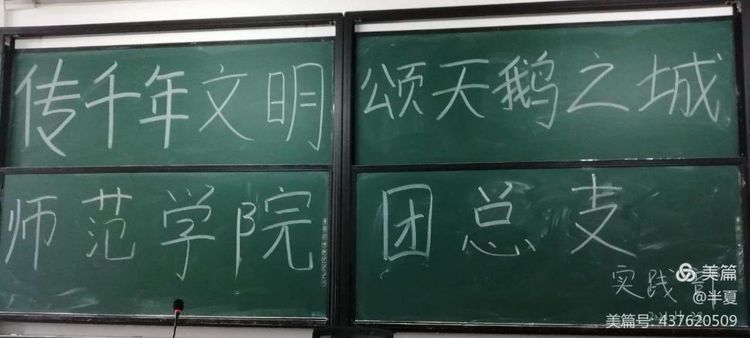 传千年文明 颂天鹅之城
师范学院 团总支
实践部
美篇
@半夏
美篇号: 437620509